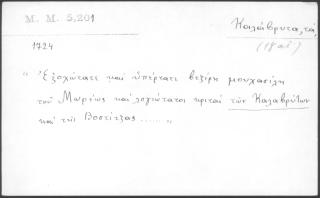 Μ. Μ. 5,201
Καλάβρυτα, τά,
(18 αἰ)
1724
" Ἐξοχώτατε καὶ ὑπέρτατε βεζίρη μουχασίλη
τοῦ Μωρέως καὶ λογιώτατοι κριταὶ τῶν Καλαβρύτων
καὶ τῆς Βοστίτζας ...... "